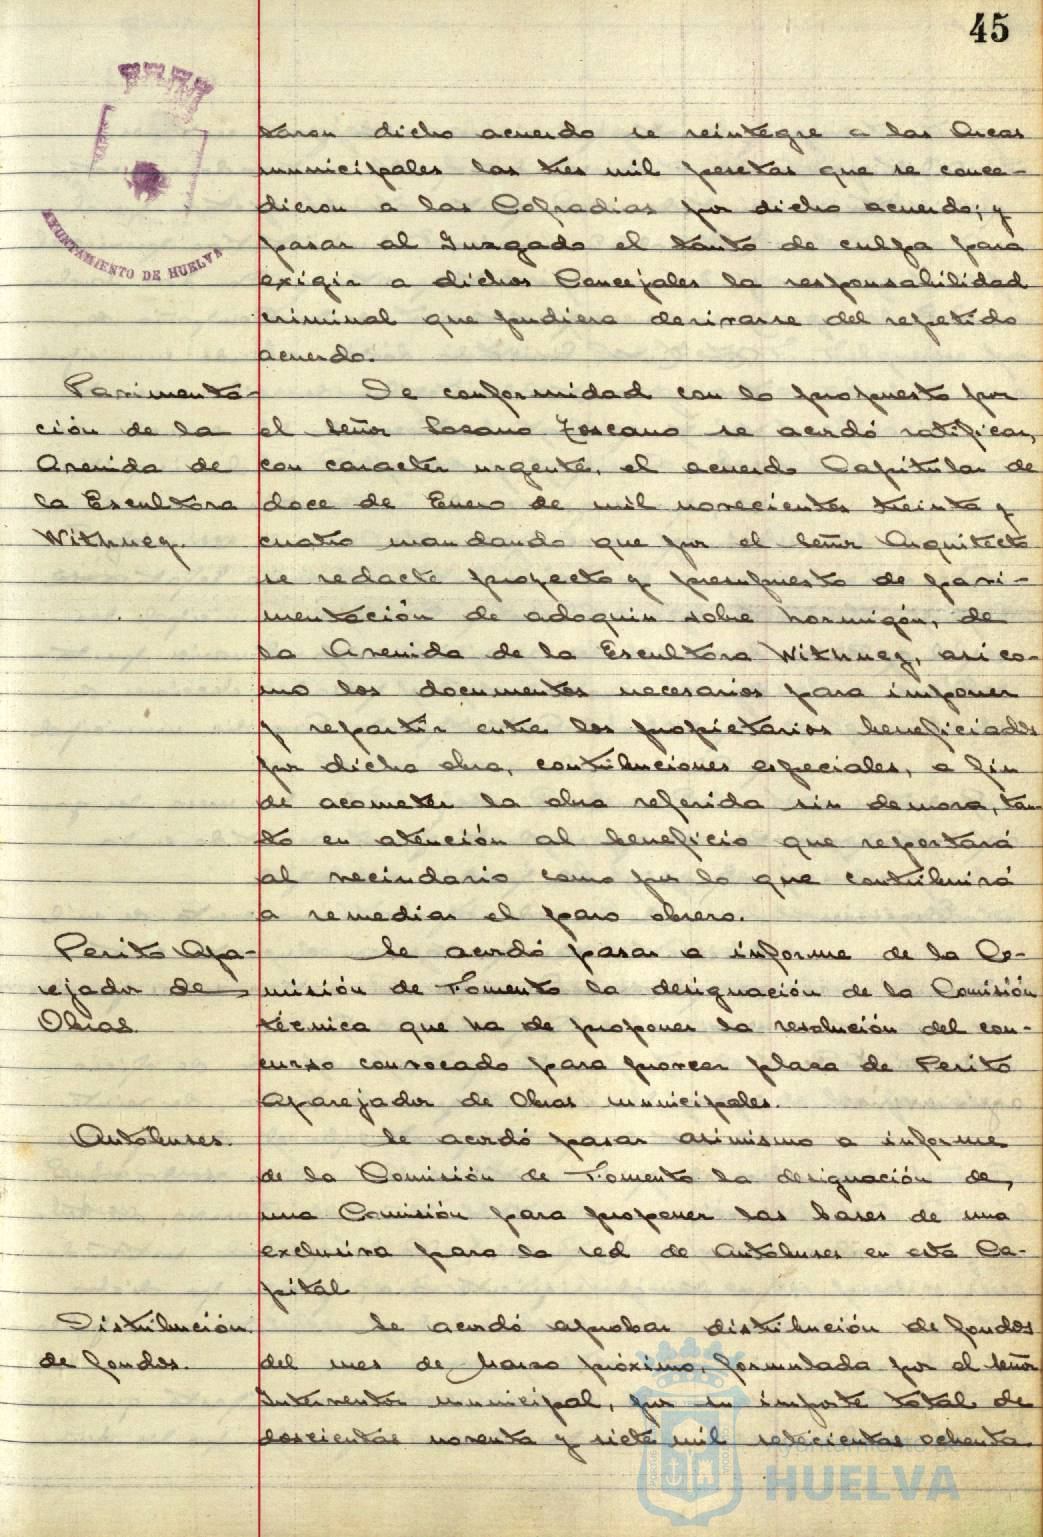 45
AYUNTAMIENTO DE HUELVA
taron dicho acuerdo se reintegre a las Arcas
municipales las tres mil pesetas que se conce-
dieron a las Cofradías por dicho acuerdo; y
pasar al Juzgado el tanto de culpa para
exigir a dichos Concejales la responsabilidad
criminal que pudiera derivarse del repetido
acuerdo.
Pavimenta-
ción de la
Avenida de
la Escultora
Withney.
De conformidad con lo propuesto por
el señor Lozano Toscano se acordó ratificar,
con caracter urgente, el acuerdo Capitular de
doce de Enero de mil novecientos treinta y
cuatro mandando que por el señor Arquitecto
se redacte proyecto y presupuesto de pavi-
mentación de adoquin sobre hormigón, de
la Avenida de la Escultora Withney, asi co-
mo los documentos necesarios para imponer
y repartir entre los propietarios beneficiados
por dicha obra, contribuciones especiales, a fin
de acometer la obra referida sin demora, tan-
to en atención al beneficio que reportará
al vecindario como por lo que contribuirá
a remediar el paro obrero.
Perito Apa-
rejador de
Obras
Se acordó pasar a informe de la Co-
misión de Fomento la designación de la Comisión
técnica que ha de proponer la resolución del con-
curso convocado para proveer plaza de Perito
Aparejador de Obras municipales.
Autobuses.
Se acordó pasar asimismo a informe
de la Comisión de Fomento la designación de,
una Comisión para proponer las bases de una
exclusiva para la red de Autobuses en esta Ca-
pital
Distribución
de fondos.
Se acordó aprobar distribución de fondos
del mes de Marzo próximo, formulada por el señor
Interventor municipal, por su importe total de
doscientas noventa y siete mil setecientas ochenta
HUELVA